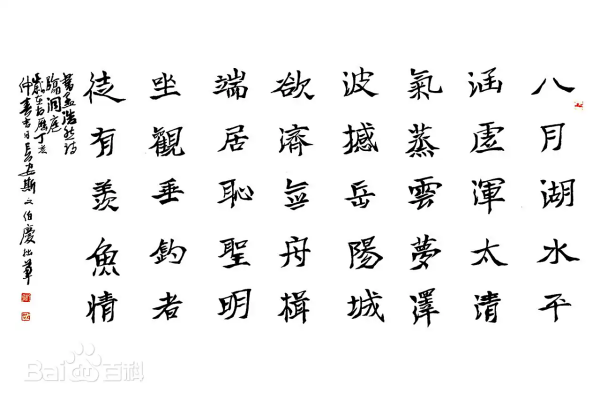 八月湖水平
涵虛渾太清
氣蒸雲夢澤
波撼岳陽城
欲濟無舟楫
端居恥聖明
坐觀垂釣者
徒有羨魚情
書孟浩然詩
臨洞庭
歲在古曆丁亥
仲春吉日長安斯文伯慶作草
Bai百科